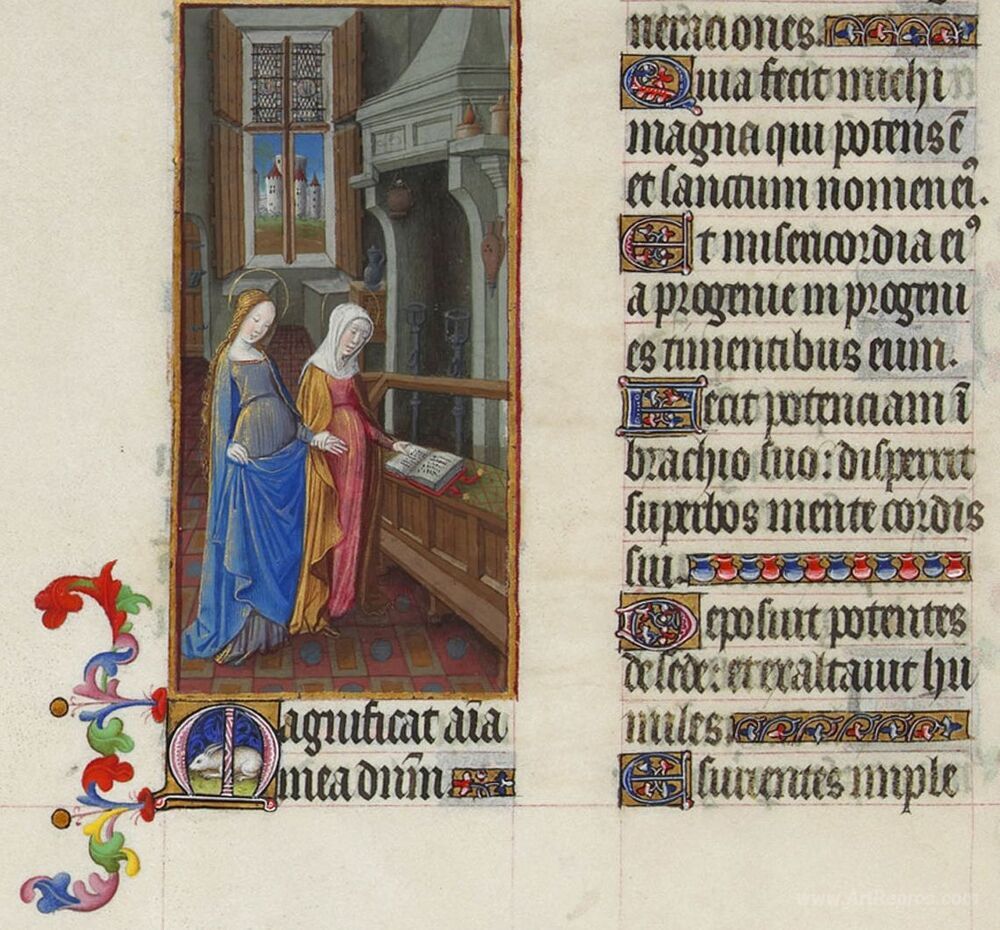 Magnificat aīa
mea dnm̄
neraciones.
Quia fecit michi
magna qui potens ē
et sanctum nomen eiꝰ.
Et misericordia eiꝰ
a progenie in progeni
es timentibus eum.
Fecit potenciam ī
brachio suo: dispersit
superbos mente cordis
sui.
Deposuit potentes
de sede: et exaltavit hu
miles.
Esurientes imple
www.ArtRepros.com